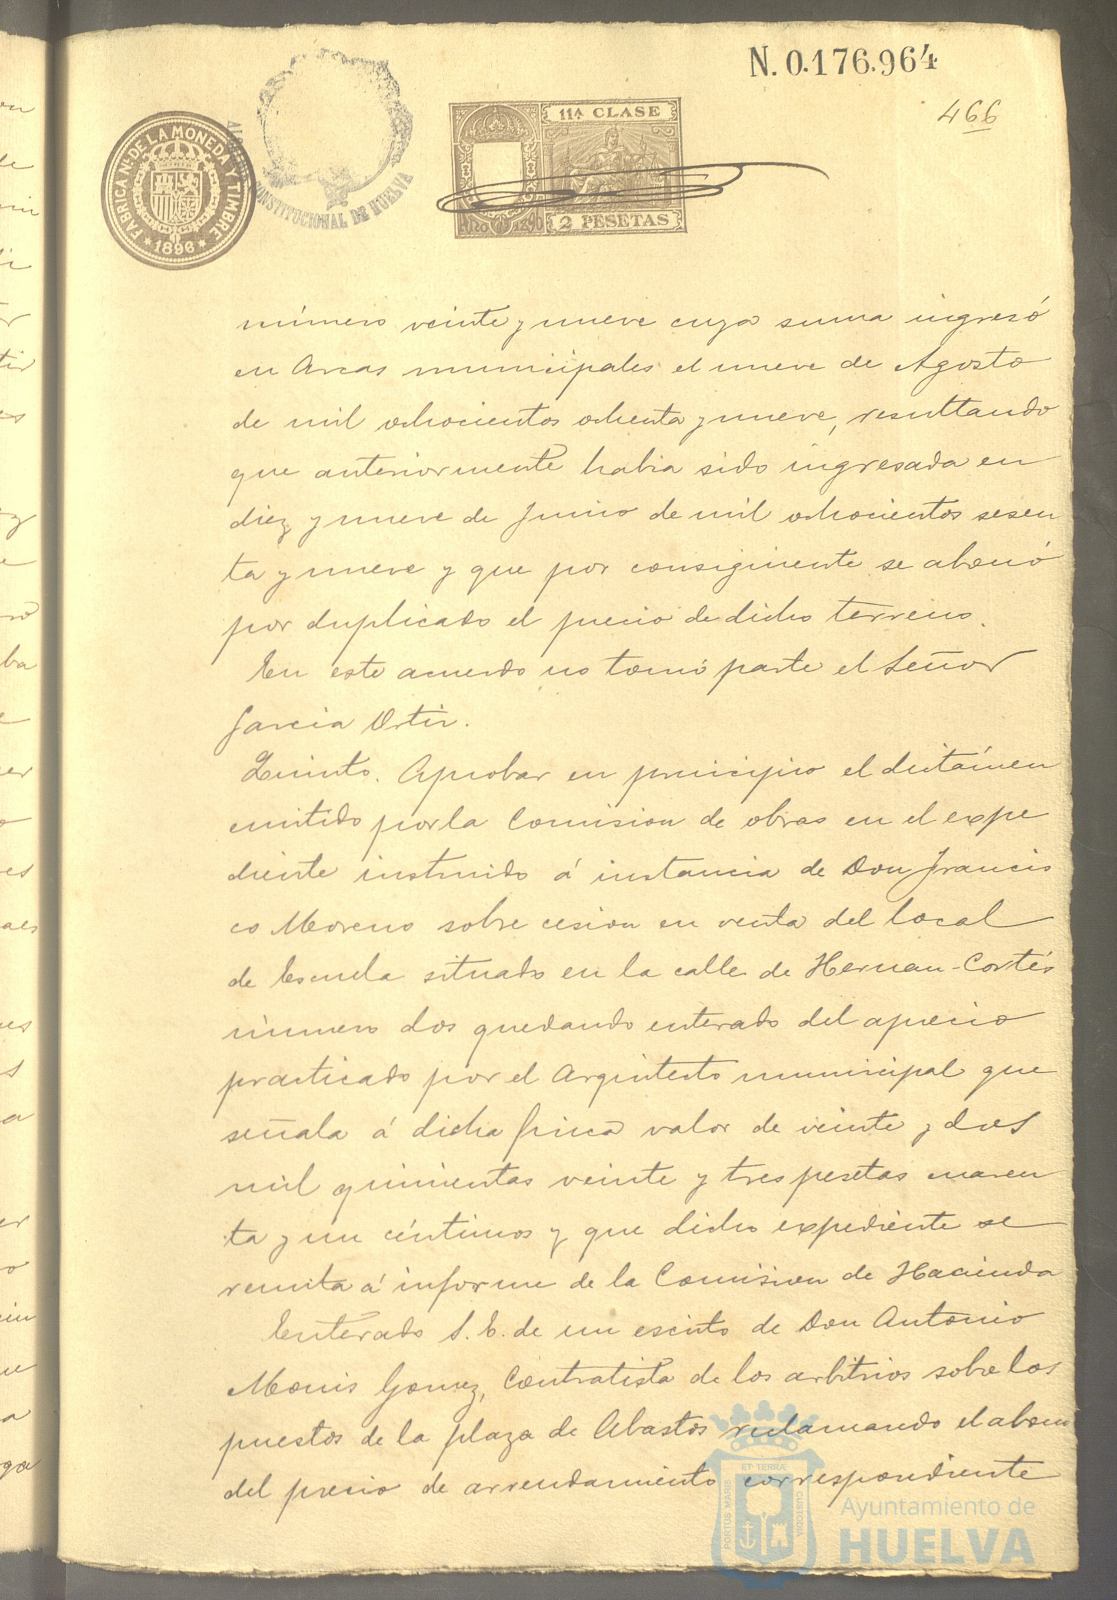 N. 0.176.964
466
FABRICA Nal. DE LA MONEDA Y TIMBRE
* 1896 *
CONSTITUCIONAL DE HUELVA
11ª CLASE
2 PESETAS
número veinte y nueve cuya suma ingresó
en Arcas municipales el nueve de Agosto
de mil ochocientos ochenta y nueve, resultando
que anteriormente habia sido ingresada en
diez y nueve de Junio de mil ochocientos sesen
ta y nueve y que por consiguiente se abonó
por duplicado el precio de dicho terreno.
En este acuerdo no tomó parte el Señor
Garcia Ortiz.
Quinto. Aprobar en principio el dictámen
emitido por la Comision de obras en el expe
diente instruido á instancia de Don Francis
co Moreno sobre cesion en venta del local
de Escuela situado en la calle de Hernan-Cortés
número dos quedando enterado del aprecio
practicado por el Arquitecto municipal que
señala á dicha finca valor de veinte y dos
mil quinientas veinte y tres pesetas cuaren
ta y un céntimos y que dicho expediente se
remita á informe de la Comision de Hacienda
Enterado S. E. de un escrito de Don Antonio
Monis Gomez, Contratista de los arbitrios sobre los
puestos de la plaza de Abastos reclamando el abono
del precio de arrendamiento correspondiente
PORTUS MARIS
ET TERRAE
CUSTODIA
Ayuntamiento de
HUELVA